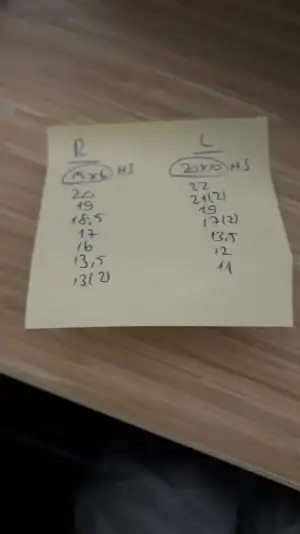 R
19x6 HJ
20
19
18,5
17
16
13,5
13(2)
L
20x10 HJ
22
21(2)
19
17(2)
13,5
12
11